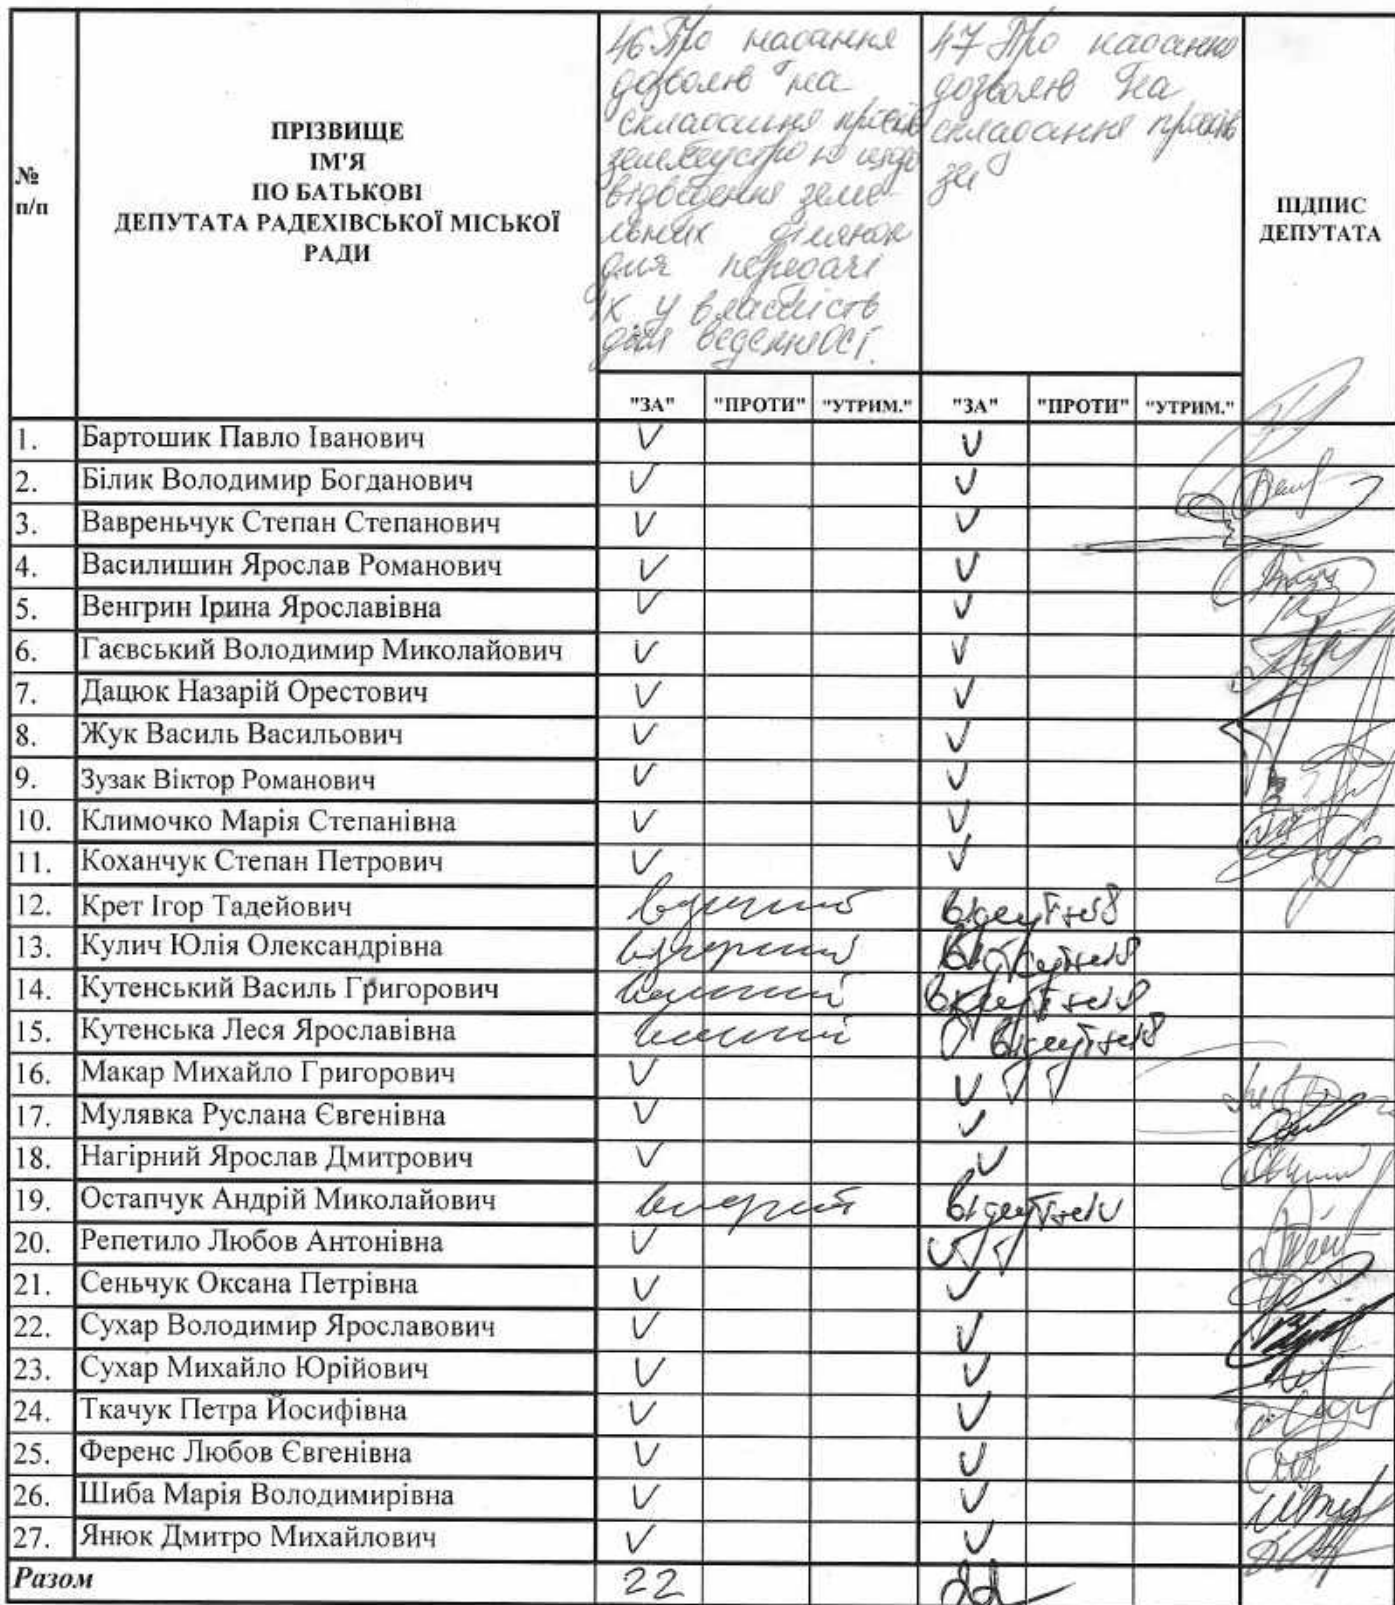 №
п/п
ПРІЗВИЩЕ
ІМ'Я
ПО БАТЬКОВІ
ДЕПУТАТА РАДЕХІВСЬКОЇ МІСЬКОЇ
РАДИ
46 Про надання
дозволів на
складання проектів
землеустрою щодо
відведення земе-
льних ділянок
для передачі
їх у власність
для
47 Про надання
дозволів на
складання проектів
зе
ПІДПИС
ДЕПУТАТА
"ЗА" "ПРОТИ" "УТРИМ." "ЗА" "ПРОТИ" "УТРИМ."
1. Бартошик Павло Іванович V V
2. Білик Володимир Богданович V V
3. Вавреньчук Степан Степанович V V
4. Василишин Ярослав Романович V V
5. Венгрин Ірина Ярославівна V V
6. Гаєвський Володимир Миколайович V V
7. Дацюк Назарій Орестович V V
8. Жук Василь Васильович V V
9. Зузак Віктор Романович V V
10. Климочко Марія Степанівна V V
11. Коханчук Степан Петрович V V
12. Крет Ігор Тадейович
13. Кулич Юлія Олександрівна
14. Кутенський Василь Григорович
15. Кутенська Леся Ярославівна
16. Макар Михайло Григорович V V
17. Мулявка Руслана Євгенівна V V
18. Нагірний Ярослав Дмитрович V V
19. Остапчук Андрій Миколайович
20. Репетило Любов Антонівна V V
21. Сеньчук Оксана Петрівна V V
22. Сухар Володимир Ярославович V V
23. Сухар Михайло Юрійович V V
24. Ткачук Петра Йосифівна V V
25. Ференс Любов Євгенівна V V
26. Шиба Марія Володимирівна V V
27. Янюк Дмитро Михайлович V V
Разом 22 22